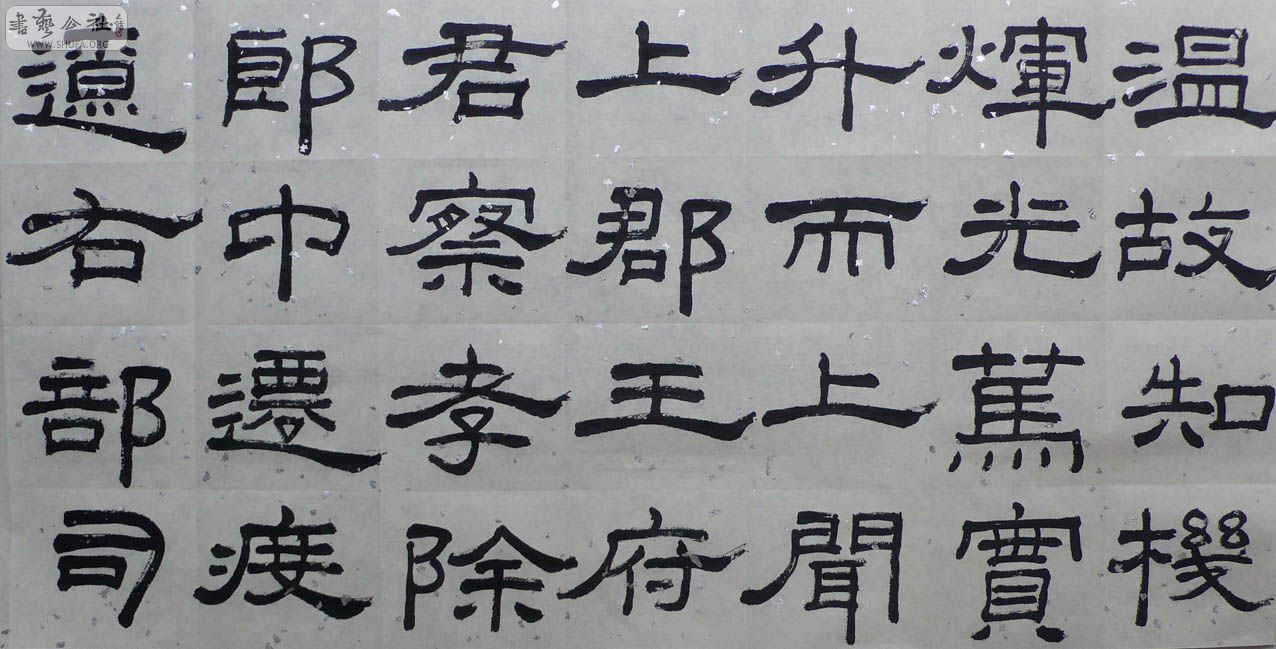 温故知機
煇光篤實
升而上聞
上郡王府
君察孝除
郎中遷度
遼右部司
書藝公社
WWW.SHUFA.ORG